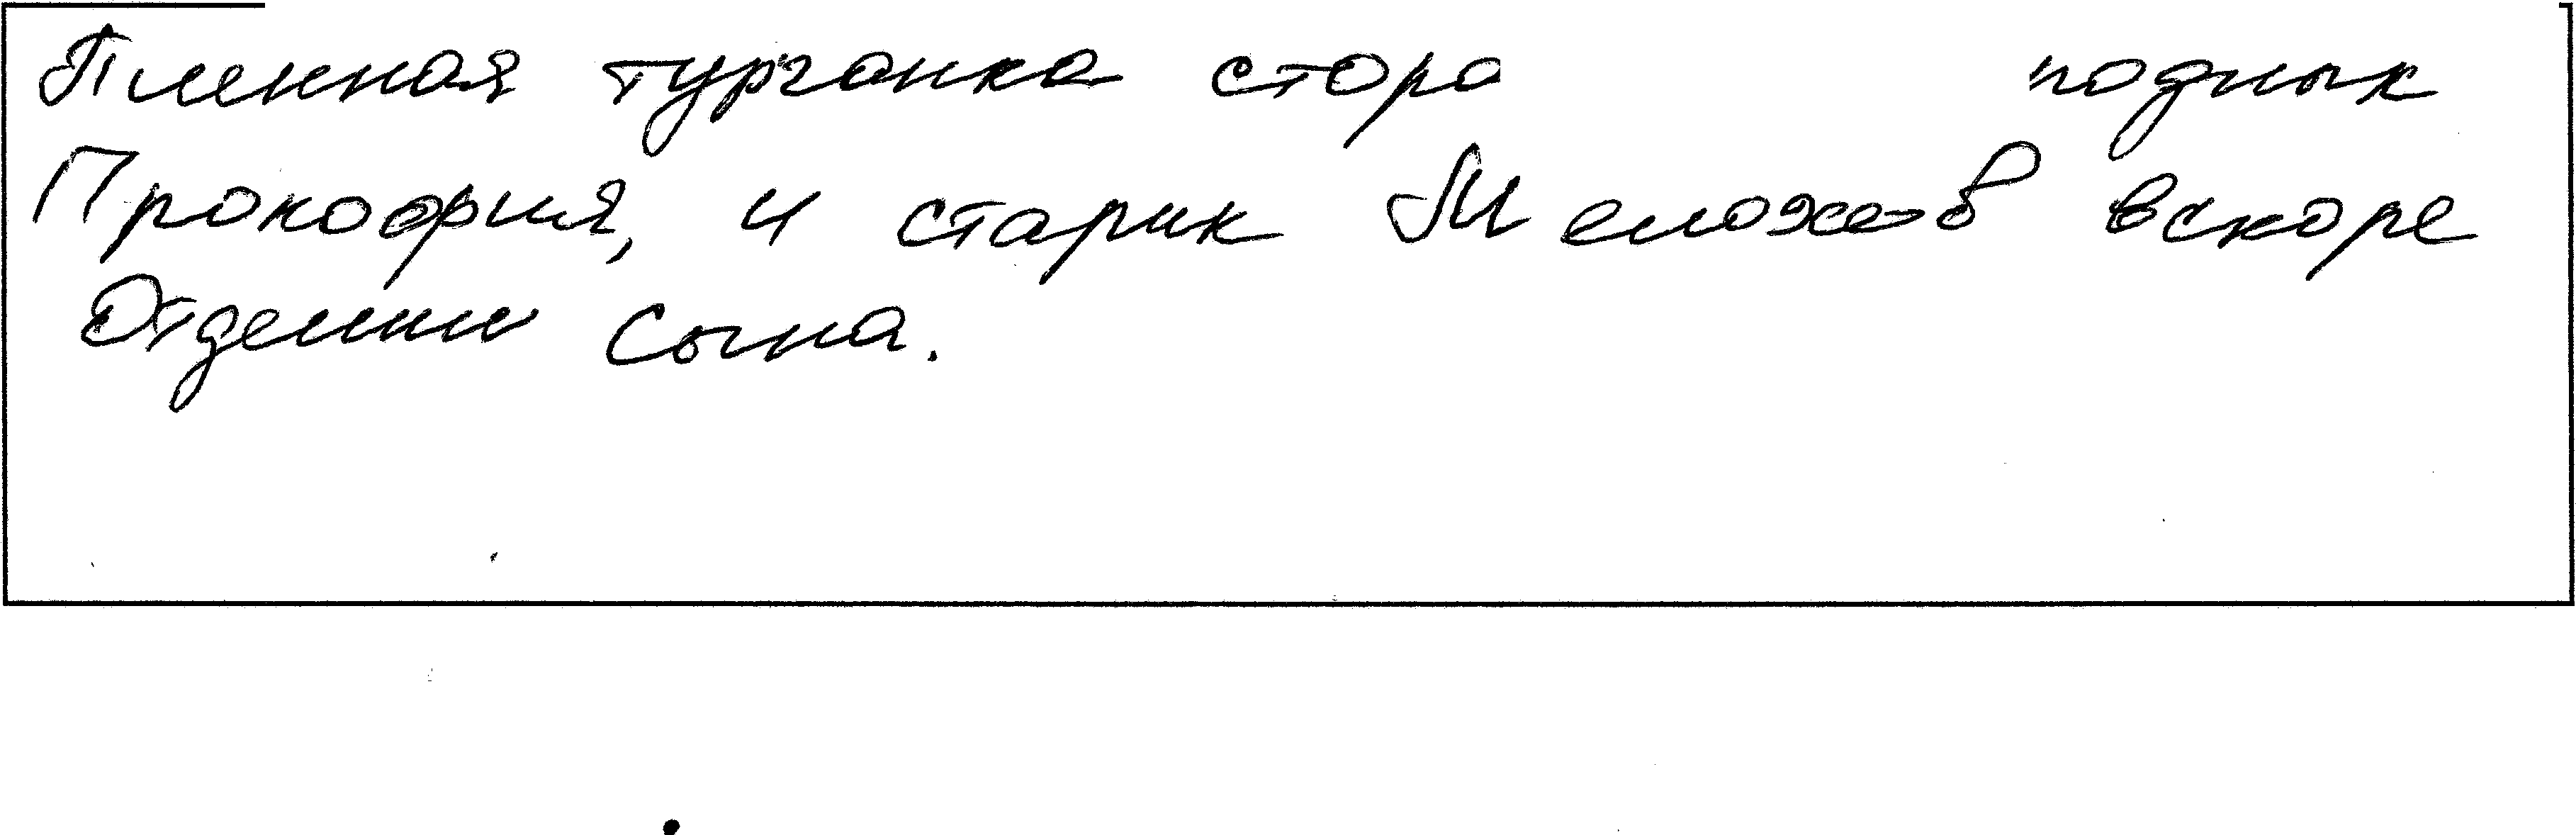 Пленная турчанка сторо родных
Прокофия, и старик Мелехов вскоре
Отделил сына.